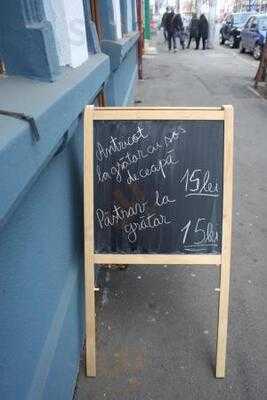 Antricot
la grătar cu sos
de ceapă
15 lei
Păstrav la
grătar
15 lei